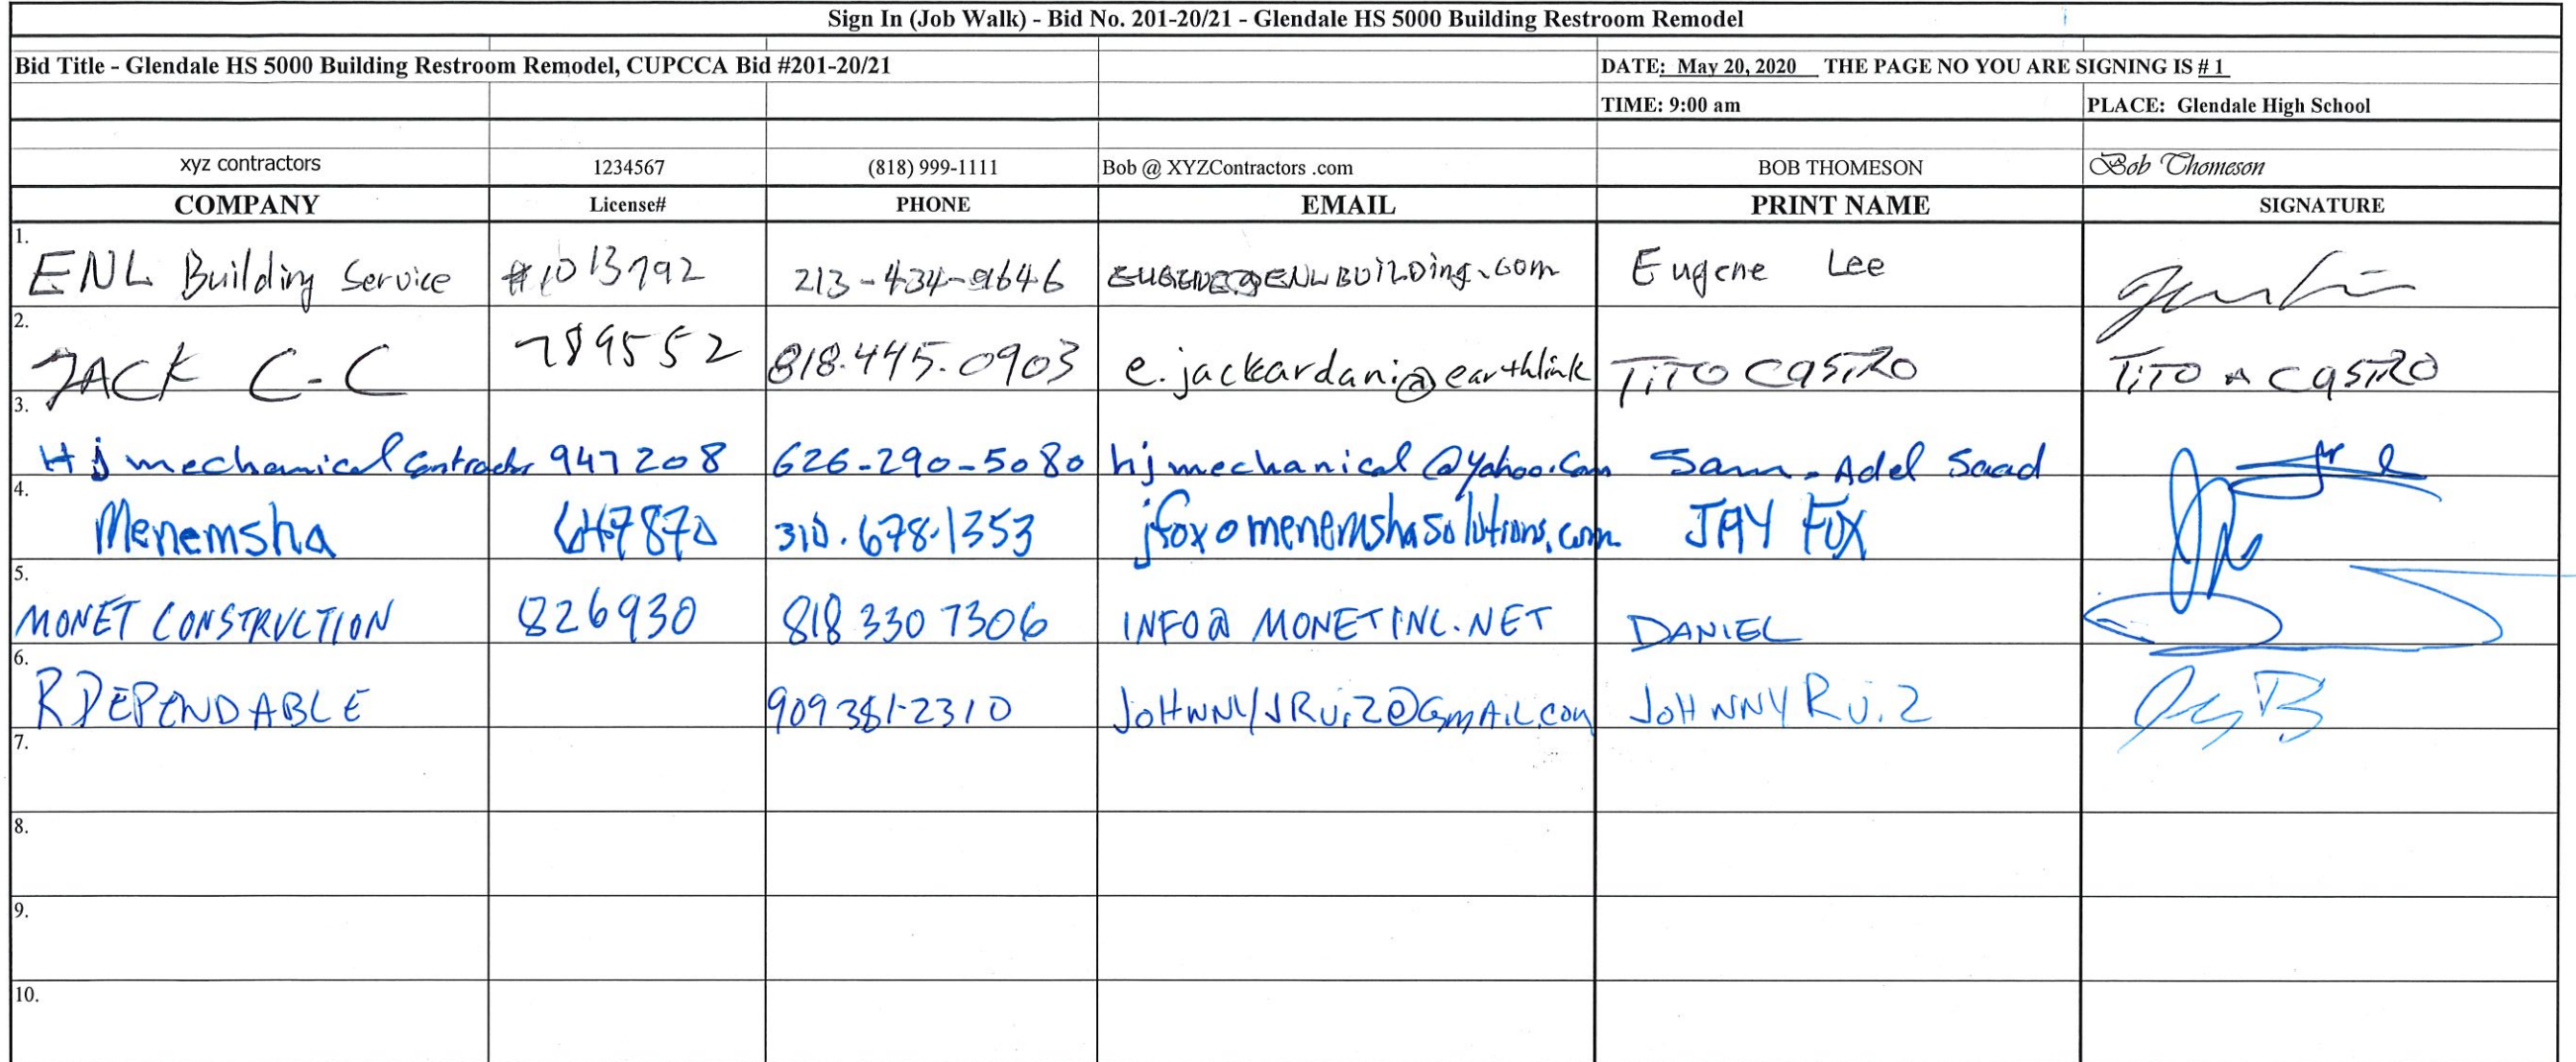 Sign In (Job Walk) - Bid No. 201-20/21 - Glendale HS 5000 Building Restroom Remodel
Bid Title - Glendale HS 5000 Building Restroom Remodel, CUPCCA Bid #201-20/21 DATE: May 20, 2020 THE PAGE NO YOU ARE SIGNING IS # 1
TIME: 9:00 am PLACE: Glendale High School
xyz contractors 1234567 (818) 999-1111 Bob @ XYZContractors .com BOB THOMESON Bob Thomeson
COMPANY License# PHONE EMAIL PRINT NAME SIGNATURE
1. ENL Building Service #1013792 213-434-9646 Eugene Lee
2. JACK C-C 789552 818.445.0903 e.jackardani@earthlink TiTO CASTRO TiTO A CASTRO
3. Hj mechanical Contractor 947208 626-290-5080 hjmechanical@yahoo.com Sam-Adel Saad
4. Menemsha 310.678.1353 jfox@menemshasolutions.com JAY FOX
5. MONET CONSTRUCTION 826930 818 330 7306 INFO@MONETINC.NET DANIEL
6. R DEPENDABLE 909 381-2310 JOHNNYJRUiZ@GMAiL.COM JOHNNY RUiZ
7.
8.
9.
10.